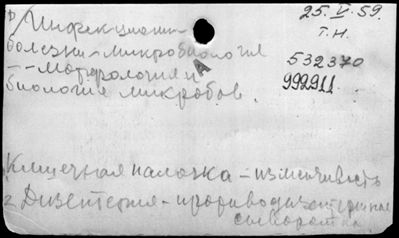 Инфекционн
25.V.59.
болезни - микробиология
т.н.
532370
- - Морфология и
992911
биология микробов.
Кишечная палочка - изменчивость
2 Дизентерия -
сыворотка